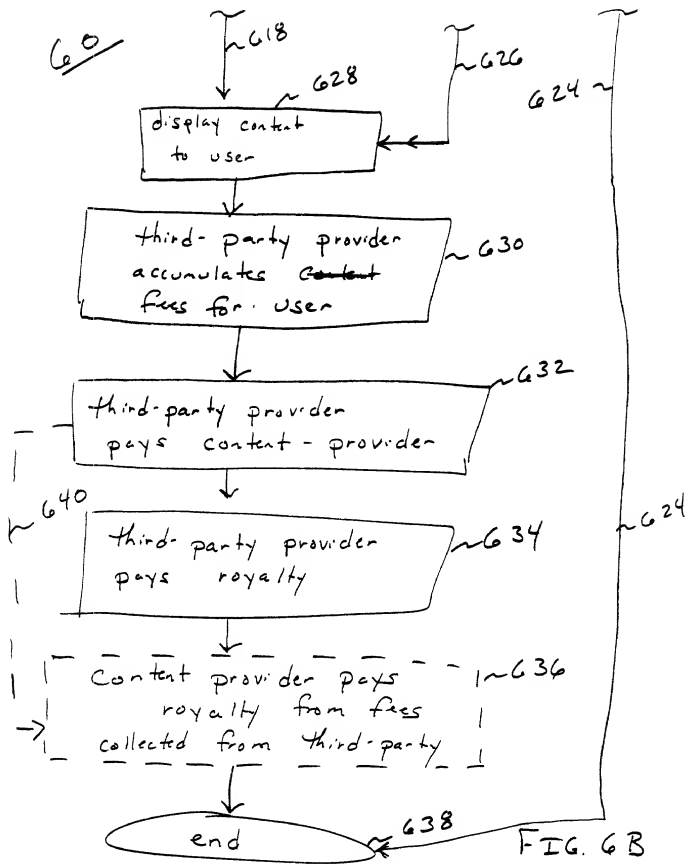 60
618
626
624
628
display content
to user
third-party provider
accumulates content
fees for user
630
632
third-party provider
pays content-provider
640
624
third-party provider
pays royalty
634
636
Content provider pays
royalty from fees
collected from third-party
638
end
FIG. 6B